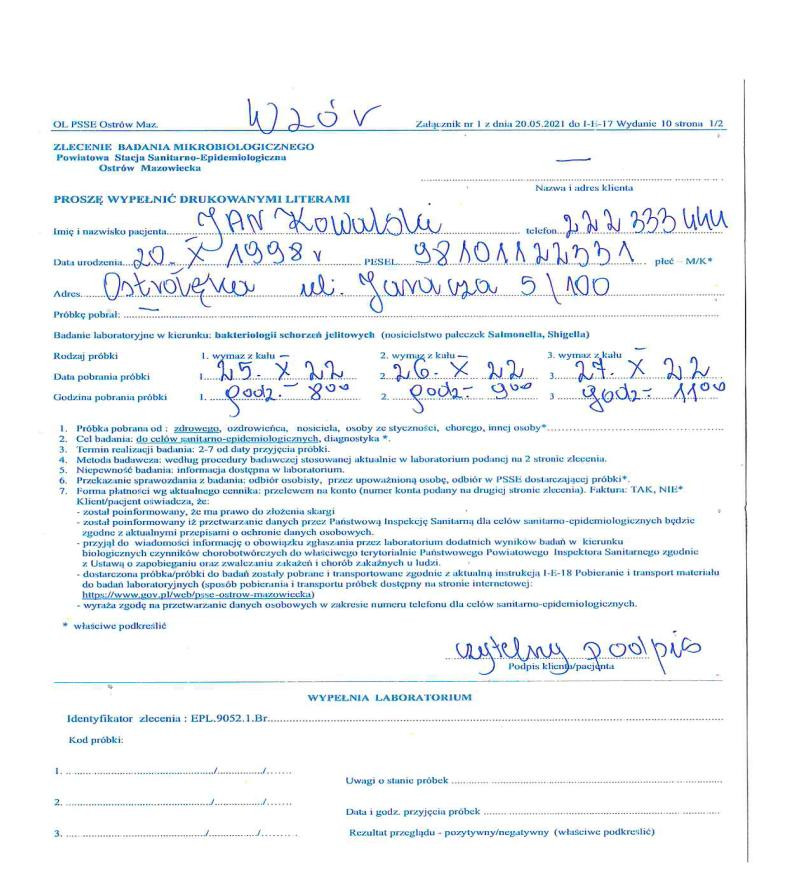 WZÓR
OL PSSE Ostrów Maz. Załącznik nr 1 z dnia 20.05.2021 do I-E-17 Wydanie 10 strona 1/2
ZLECENIE BADANIA MIKROBIOLOGICZNEGO
Powiatowa Stacja Sanitarno-Epidemiologiczna
Ostrów Mazowiecka
—
Nazwa i adres klienta
PROSZĘ WYPEŁNIĆ DRUKOWANYMI LITERAMI
Imię i nazwisko pacjenta JAN Kowalski telefon 222 333 444
Data urodzenia 20. X 1998 r PESEL 98101122331 płeć – M/K*
Adres Ostrołęka ul. Jaracza 5/100
Próbkę pobrał: —
Badanie laboratoryjne w kierunku: bakteriologii schorzeń jelitowych (nosicielstwo pałeczek Salmonella, Shigella)
Rodzaj próbki 1. wymaz z kału – 2. wymaz z kału – 3. wymaz z kału –
Data pobrania próbki 1. 25. X 22 2. 26. X 22 3. 27. X 22
Godzina pobrania próbki 1. godz.- 800 2. godz- 900 3 godz- 1100
1. Próbka pobrana od : zdrowego, ozdrowieńca, nosiciela, osoby ze styczności, chorego, innej osoby*
2. Cel badania: do celów sanitarno-epidemiologicznych, diagnostyka *.
3. Termin realizacji badania: 2-7 od daty przyjęcia próbki.
4. Metoda badawcza: według procedury badawczej stosowanej aktualnie w laboratorium podanej na 2 stronie zlecenia.
5. Niepewność badania: informacja dostępna w laboratorium.
6. Przekazanie sprawozdania z badania: odbiór osobisty, przez upoważnioną osobę, odbiór w PSSE dostarczającej próbki*.
7. Forma płatności wg aktualnego cennika: przelewem na konto (numer konta podany na drugiej stronie zlecenia). Faktura: TAK, NIE*
Klient/pacjent oświadcza, że:
- został poinformowany, że ma prawo do złożenia skargi
- został poinformowany iż przetwarzanie danych przez Państwową Inspekcję Sanitarną dla celów sanitarno-epidemiologicznych będzie
zgodne z aktualnymi przepisami o ochronie danych osobowych.
- przyjął do wiadomości informację o obowiązku zgłaszania przez laboratorium dodatnich wyników badań w kierunku
biologicznych czynników chorobotwórczych do właściwego terytorialnie Państwowego Powiatowego Inspektora Sanitarnego zgodnie
z Ustawą o zapobieganiu oraz zwalczaniu zakażeń i chorób zakaźnych u ludzi.
- dostarczona próbka/próbki do badań zostały pobrane i transportowane zgodnie z aktualną instrukcją I-E-18 Pobieranie i transport materiału
do badań laboratoryjnych (sposób pobierania i transportu próbek dostępny na stronie internetowej:
https://www.gov.pl/web/psse-ostrow-mazowiecka)
- wyraża zgodę na przetwarzanie danych osobowych w zakresie numeru telefonu dla celów sanitarno-epidemiologicznych.
* właściwe podkreślić
czytelny podpis
Podpis klienta/pacjenta
WYPEŁNIA LABORATORIUM
Identyfikator zlecenia : EPL.9052.1.Br
Kod próbki:
1. / /
Uwagi o stanie próbek
2. / /
Data i godz. przyjęcia próbek
3. / / Rezultat przeglądu - pozytywny/negatywny (właściwe podkreślić)